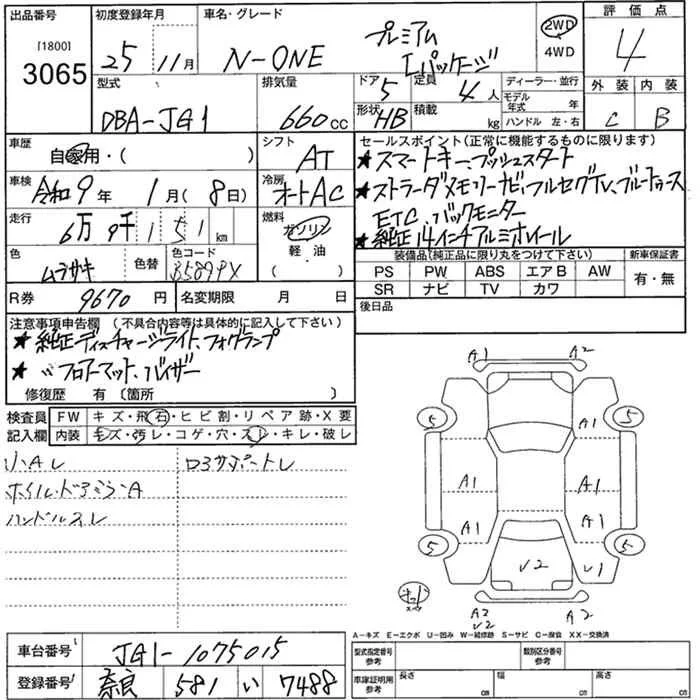 出品番号 初度登録年月 車名・グレード 評価点
[1800]
3065
25年11月
N-ONE
プレミアム
Lパッケージ
2WD
4WD
4
型式 排気量 ドア 定員 ディーラー・並行 外装 内装
DBA-JG1 660cc 5 4人
モデル年式 年
形状 HB 積載 kg ハンドル 左・右
C B
車歴 自家用・( ) シフト AT
セールスポイント(正常に機能するものに限ります)
★スマートキー、プッシュスタート
車検 令和9年1月(8日) 冷房 オートAC
★ストラーダメモリーナビ、フルセグTV、ブルートゥース
ETC、バックモニター
走行 6万9千151km 燃料 ガソリン 軽・油 ( )
★純正14インチアルミホイール
色 ムラサキ 色替 色コード B589PX
装備品(純正品に限り丸をつけて下さい) 新車保証書
PS PW ABS エアB AW 有・無
SR ナビ TV カワ
R券 9670円 名変期限 月 日
後日品
注意事項申告欄 (不具合内容等は具体的に記入して下さい)
★純正ディスチャージライト、フォグランプ
★〃フロアーマット、バイザー
修復歴 有〔箇所 〕
検査員記入欄 FW キズ・飛石・ヒビ割・リペア跡・X要
内装 キズ・汚レ・コゲ・穴・スレ・キレ・破レ
小Aレ
ホイル・ドアミラーA
ハンドルスレ
A1 A2
5 A1 5
A1 A1
A1 A1
5 V2 5
V1
A2
V2
A2
A-キズ E-エクボ U-凹み W-補修跡 S-サビ C-腐食 XX-交換済
車台番号 JG1-1075015
登録番号 奈良 581 い 7488
型式指定番号 参考 類別区分番号 参考
車庫証明用 参考 長さ cm 幅 cm 高さ cm